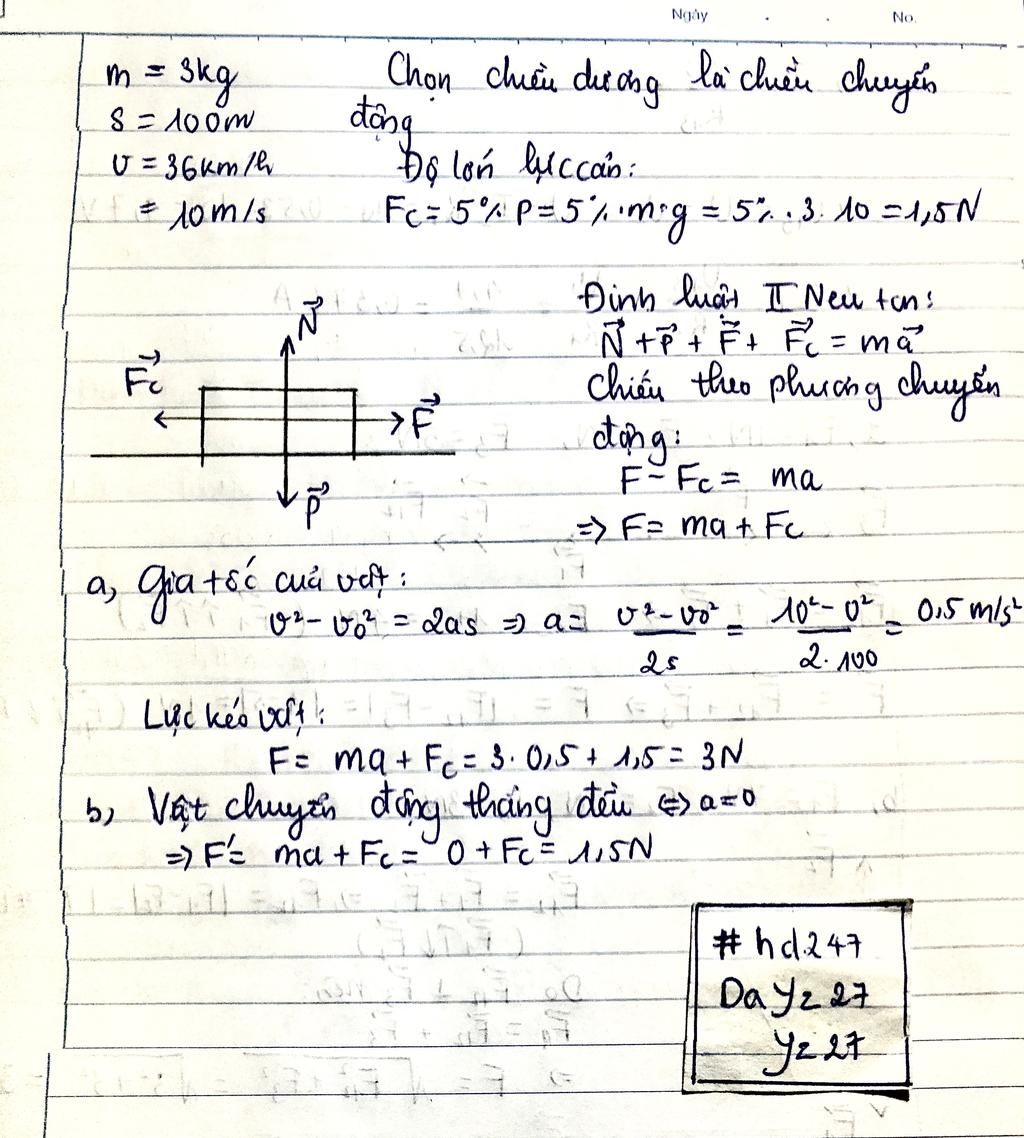 Ngày . . No.
m = 3kg
s = 100m
v = 36km/h
= 10m/s
Chọn chiều dương là chiều chuyển
động
Độ lớn lực cản:
Fc = 5% P = 5% . m.g = 5% . 3. 10 = 1,5N
N⃗
F⃗c
F⃗
P⃗
Định luật II Neu tơn:
N⃗ + P⃗ + F⃗ + F⃗c = ma⃗
chiếu theo phương chuyển
động:
F - Fc = ma
=> F = ma + Fc
a, Gia tốc của vật:
v² - v₀² = 2as => a = (v² - v₀²)/2s = (10² - 0²)/2.100 = 0,5 m/s²
Lực kéo vật:
F = ma + Fc = 3. 0,5 + 1,5 = 3N
b, Vật chuyển động thẳng đều <=> a = 0
=> F' = ma + Fc = 0 + Fc = 1,5N
# hd247
Da Yz 27
Yz 27